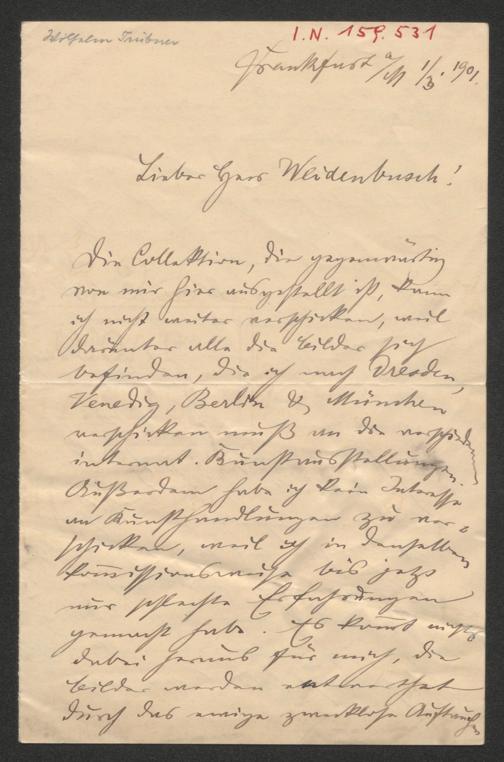 Wilhelm Trübner
I.N. 159.531
Frankfurt a/M 1/3. 1901.
Lieber Herr Weidenbusch!
Die Collektion, die gegenwärtig
von mir hier ausgestellt ist, kann
ich nicht weiter verschicken, weil
darunter alle die Bilder sich
befinden, die ich nach Dresden,
Venedig, Berlin & München
verschicken muß an die verschiedenen
internat. Kunstausstellungen.
Außerdem habe ich kein Interesse
an Kunsthandlungen zu ver-
schicken, weil ich in denselben
kommissionsweise bis jetzt
nur schlechte Erfahrungen
gemacht habe. Es kommt nichts
dabei heraus für mich, die
Bilder werden entwerthet
durch das ewige zwecklose Auftauchen